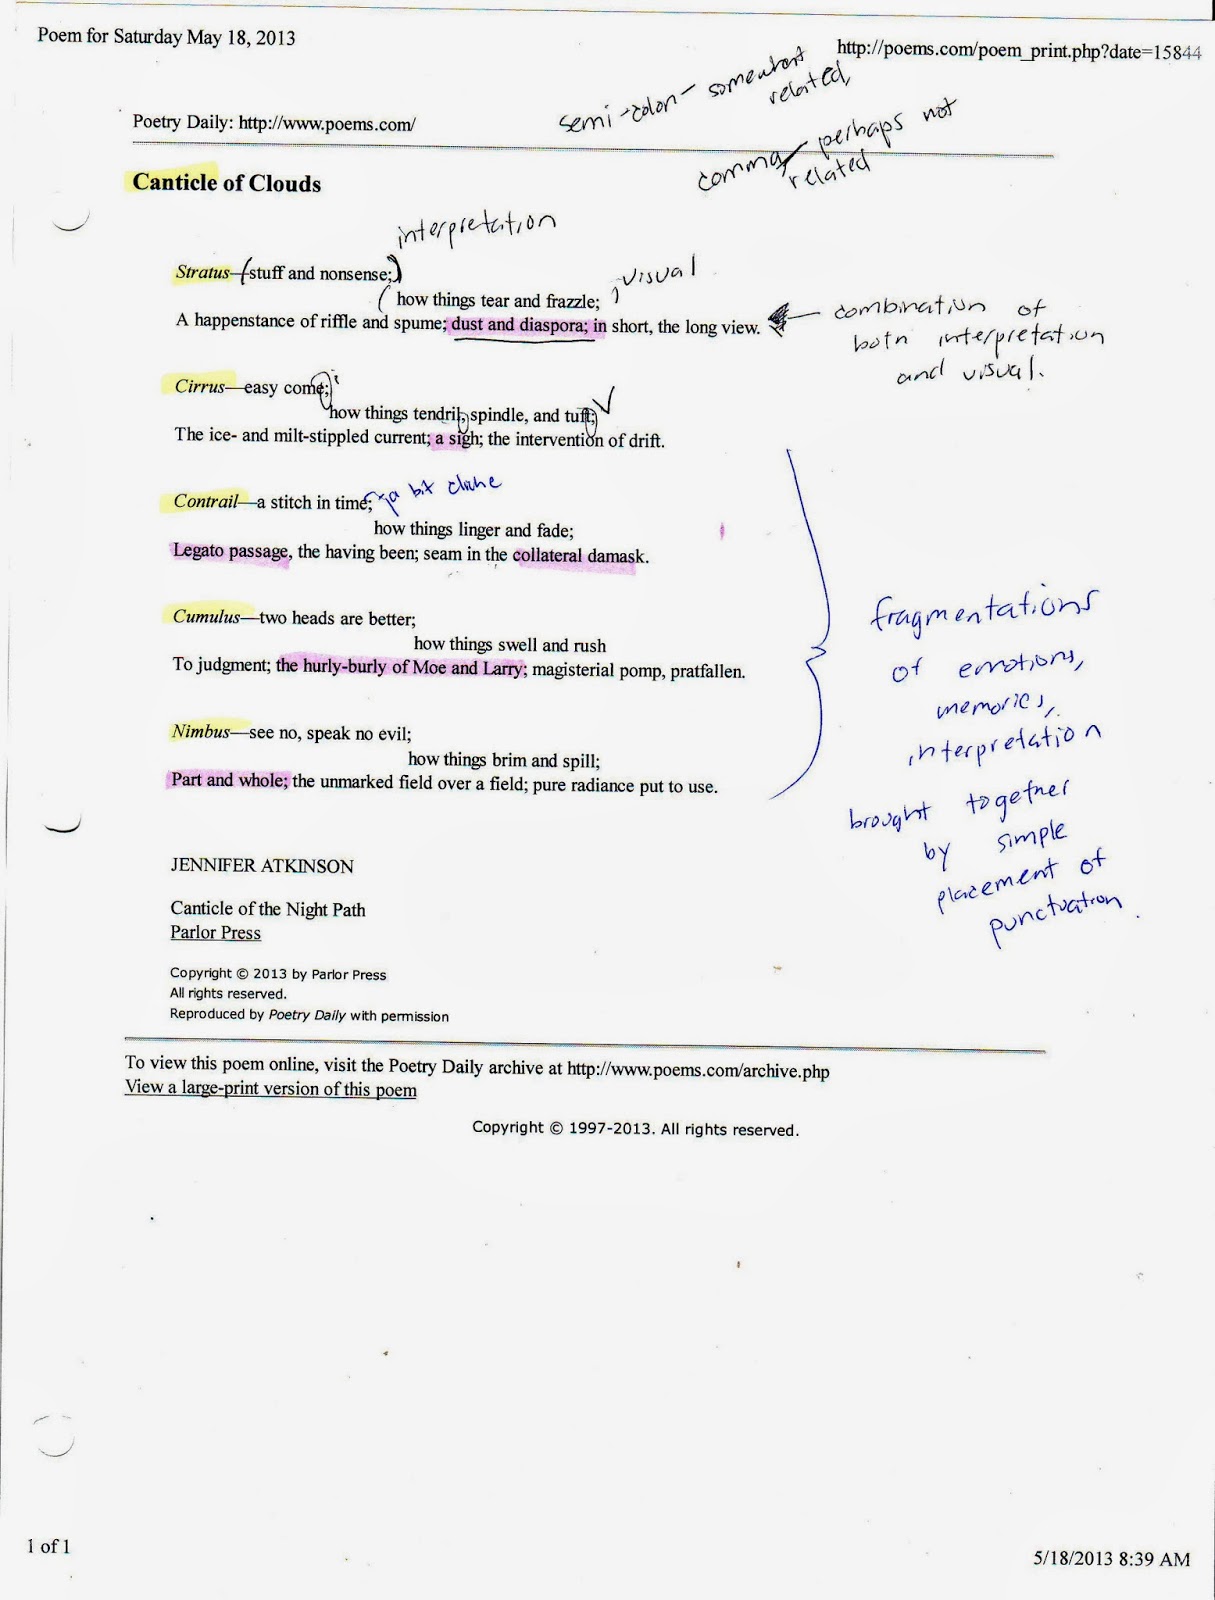 Poem for Saturday May 18, 2013
http://poems.com/poem_print.php?date=15844
semi-colon - somewhat
related,
Poetry Daily: http://www.poems.com/
comma - perhaps not
related
Canticle of Clouds
interpretation
Stratus—(stuff and nonsense;)
visual
(how things tear and frazzle;
A happenstance of riffle and spume; dust and diaspora; in short, the long view.
combination of
both interpretation
and visual.
Cirrus—easy come;
how things tendril, spindle, and tuft;
The ice- and milt-stippled current; a sigh; the intervention of drift.
Contrail—a stitch in time;
a bit cliche
how things linger and fade;
Legato passage, the having been; seam in the collateral damask.
Cumulus—two heads are better;
how things swell and rush
To judgment; the hurly-burly of Moe and Larry; magisterial pomp, pratfallen.
Nimbus—see no, speak no evil;
how things brim and spill;
Part and whole; the unmarked field over a field; pure radiance put to use.
fragmentations
of emotions,
memories,
interpretation
brought together
by simple
placement of
punctuation.
JENNIFER ATKINSON
Canticle of the Night Path
Parlor Press
Copyright © 2013 by Parlor Press
All rights reserved.
Reproduced by Poetry Daily with permission
To view this poem online, visit the Poetry Daily archive at http://www.poems.com/archive.php
View a large-print version of this poem
Copyright © 1997-2013. All rights reserved.
1 of 1
5/18/2013 8:39 AM